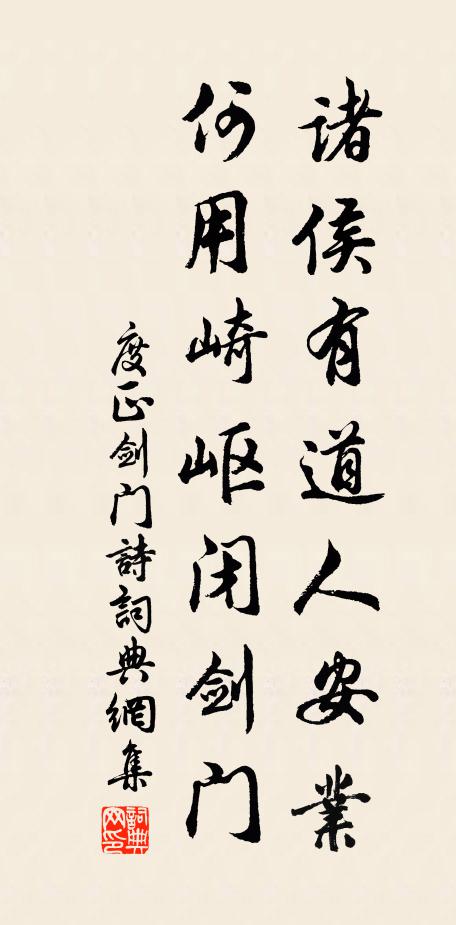 诸侯有道人安業
何用崎岖闭剑门
度正剑门詩詞典網集
詞典网印